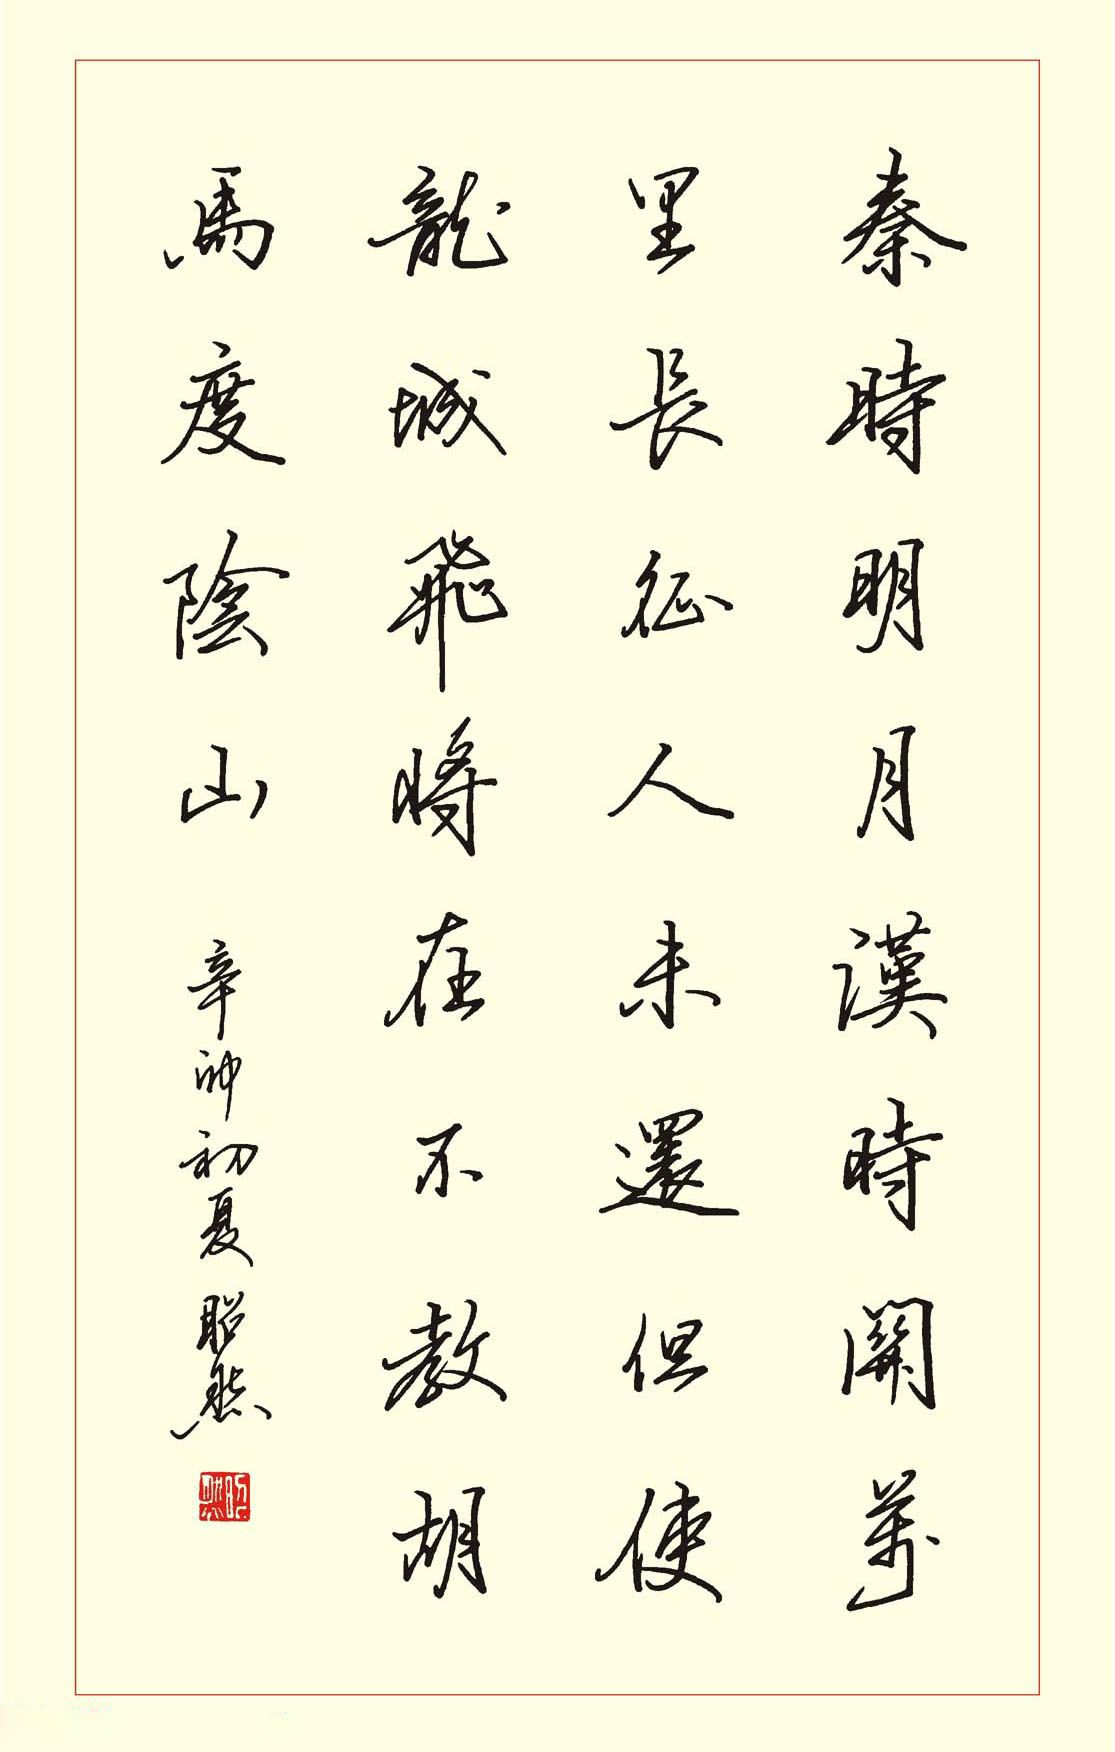 秦時明月漢時關萬
里長征人未還但使
龍城飛將在不教胡
馬度陰山
辛卯初夏 昭然
昭然